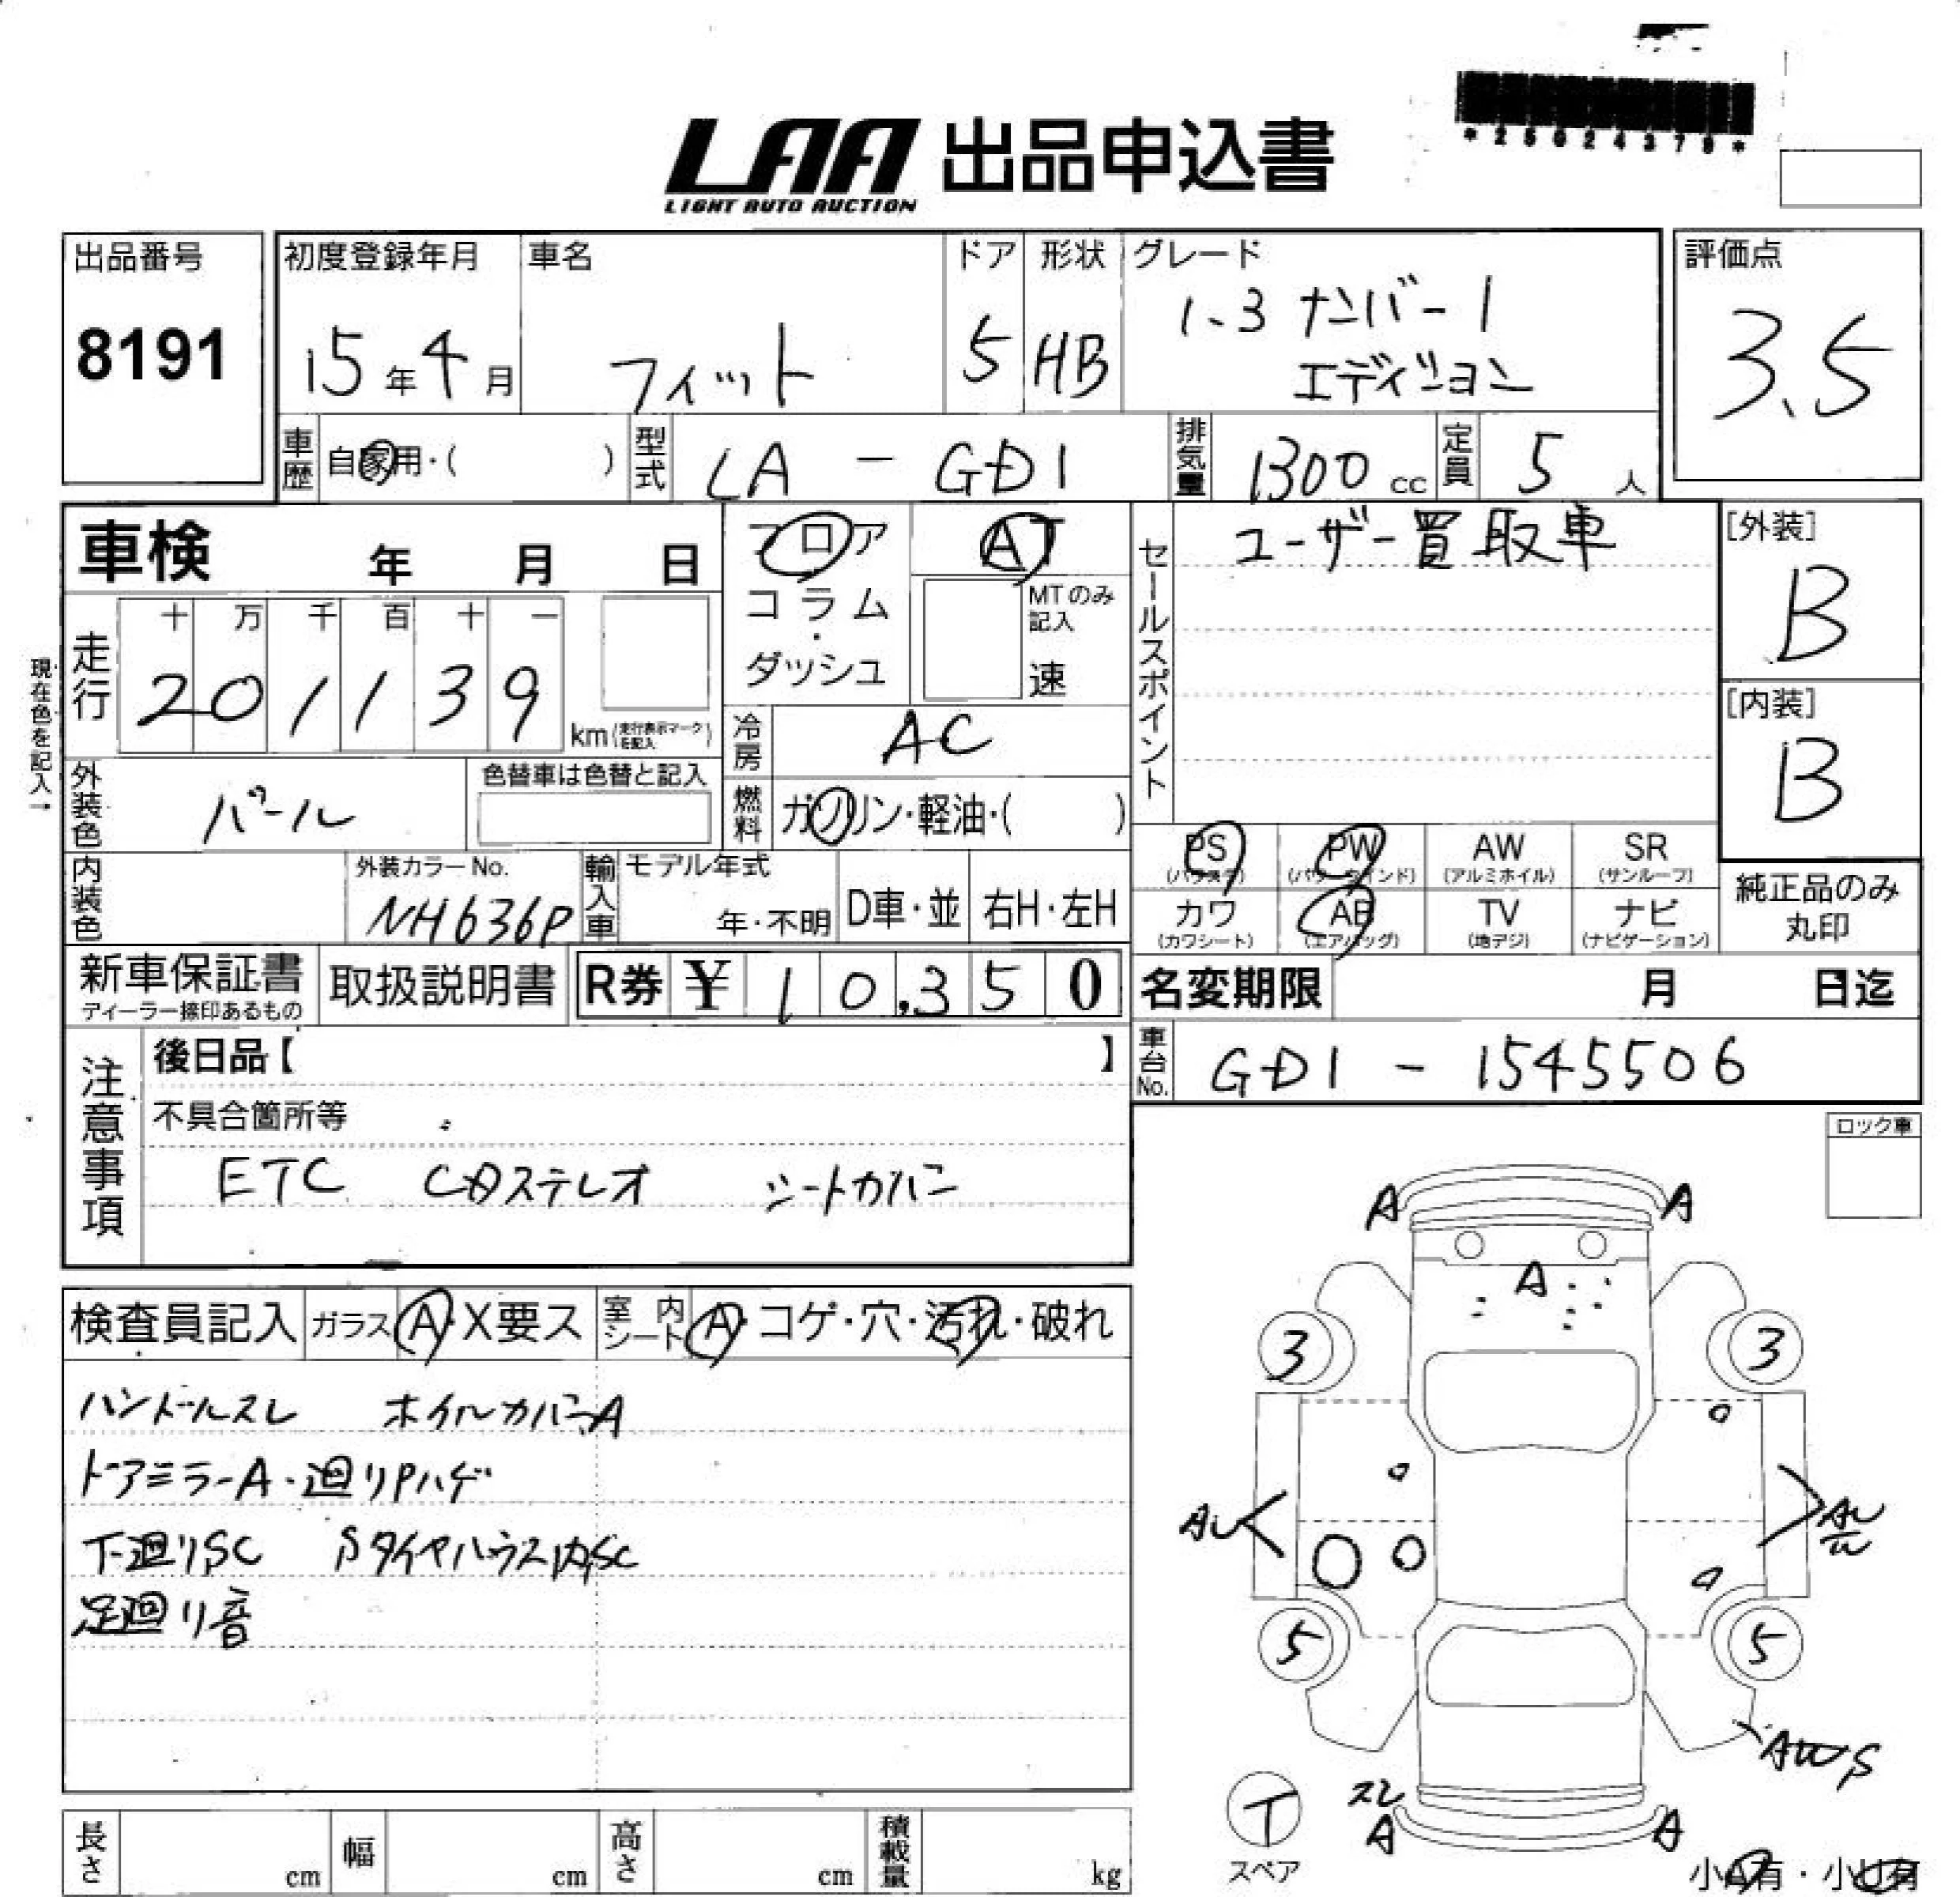 *25024379*
LAA 出品申込書
LIGHT AUTO AUCTION
出品番号
8191
初度登録年月
15年4月
車名
フィット
ドア
5
形状
HB
グレード
1.3 ナンバー1
エディション
評価点
3.5
車歴
自家用・( )
型式
LA - GD1
排気量
1300 cc
定員
5 人
車検 年 月 日
フロア
コラム
・
ダッシュ
AT
MTのみ
記入
速
セールスポイント
ユーザー買取車
[外装]
B
[内装]
B
現在色を記入→
走行
十 万 千 百 十 一
2 0 1 1 3 9
km(走行表示マークを記入)
冷房
AC
外装色
パール
色替車は色替と記入
燃料
ガソリン・軽油・( )
PS
(パワステ)
PW
(パワーウインド)
AW
(アルミホイル)
SR
(サンルーフ)
カワ
(カワシート)
AB
(エアバッグ)
TV
(地デジ)
ナビ
(ナビゲーション)
純正品のみ
丸印
内装色
外装カラーNo.
NH636P
輸入車
モデル年式
年・不明
D車・並
右H・左H
新車保証書
ディーラー捺印あるもの
取扱説明書
R券 ¥ 10,350
名変期限 月 日迄
車台No.
GD1 - 1545506
注意事項
後日品【 】
不具合箇所等
ETC CDステレオ シートカバー
ロック車
検査員記入
ガラス A・X要ス
室内シート A・コゲ・穴・汚れ・破れ
ハンドルスレ ホイルカバーA
ドアミラーA・廻りPハゲ
下廻りSC Sタイヤハウス内SC
足廻り音
A A
A
3 3
AU AU
W
5 5
AW S
スレ
A A
T
スペア
小A有・小U有
長さ cm
幅 cm
高さ cm
積載量 kg